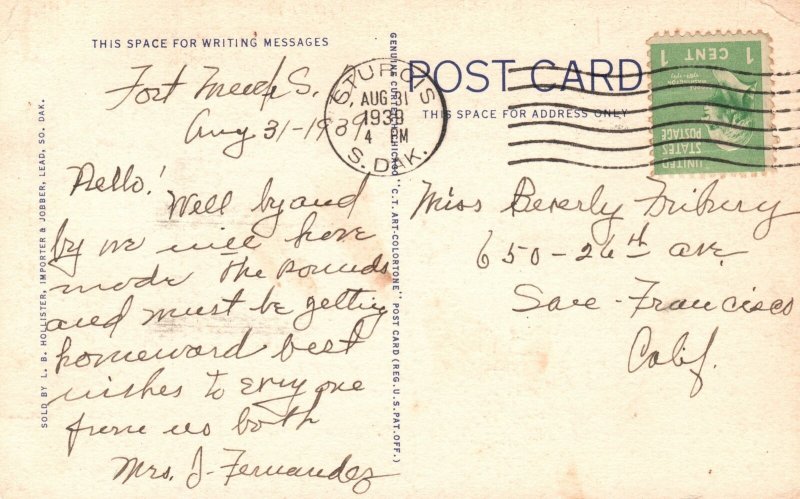 THIS SPACE FOR WRITING MESSAGES
Fort Meade S.
Aug 31-1939
Hello!
Well by and
by we will have
made the rounds
and must be getting
homeward best
wishes to everyone
from us both
Mrs. J- Fernandez
SOLD BY L. B. HOLLISTER, IMPORTER & JOBBER, LEAD, SO. DAK.
GENUINE CURTEICH-CHICAGO "C.T. ART-COLORTONE" POST CARD (REG. U.S. PAT. OFF.)
STURGIS
AUG 31
1939
4 M
S. DAK.
POST CARD
THIS SPACE FOR ADDRESS ONLY
1 CENT 1
WASHINGTON
UNITED
STATES
POSTAGE
Miss Beverly
650-26th ave.
San-Francisco
Calif.